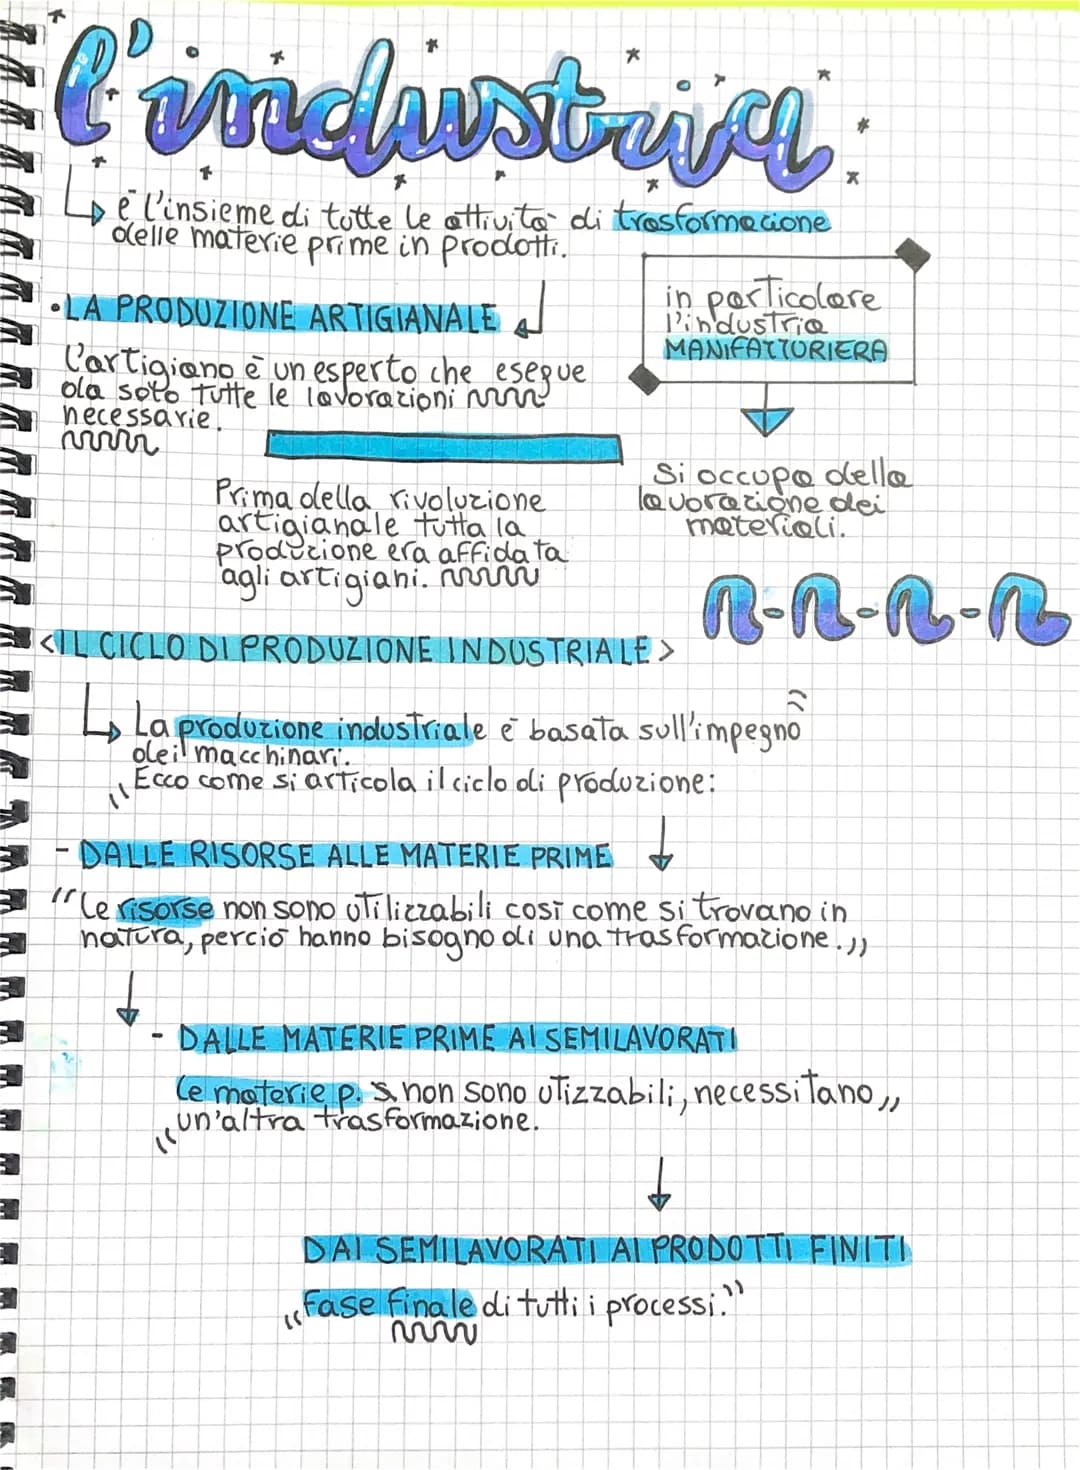 l'industria
è l'insieme di tutte le attività di trasformazione
delle materie prime in prodotti.
in particolare
l'industria
MANIFATTORIERA
Si occupa della
lavorazione dei
materiali.
•LA PRODUZIONE ARTIGIANALE
L'artigiano è un esperto che esegue
da solo tutte le lavorazioni
necessarie.
Prima della rivoluzione
artigianale tutta la
produzione era affidata
agli artigiani.
<IL CICLO DI PRODUZIONE INDUSTRIALE>
La produzione industriale è basata sull'impegno
dei macchinari.
Ecco come si articola il ciclo di produzione:
- DALLE RISORSE ALLE MATERIE PRIME
"Le risorse non sono utilizzabili così come si trovano in
natura, perciò hanno bisogno di una trasformazione.,,
- DALLE MATERIE PRIME AI SEMILAVORATI
Le materie p. non sono utizzabili, necessitano,,
"un'altra trasformazione.
DAI SEMILAVORATI AI PRODOTTI FINITI
"Fase finale di tutti i processi."